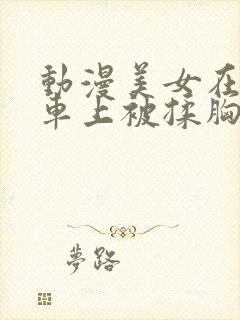 動漫美女在
車上被揉胸
夢路